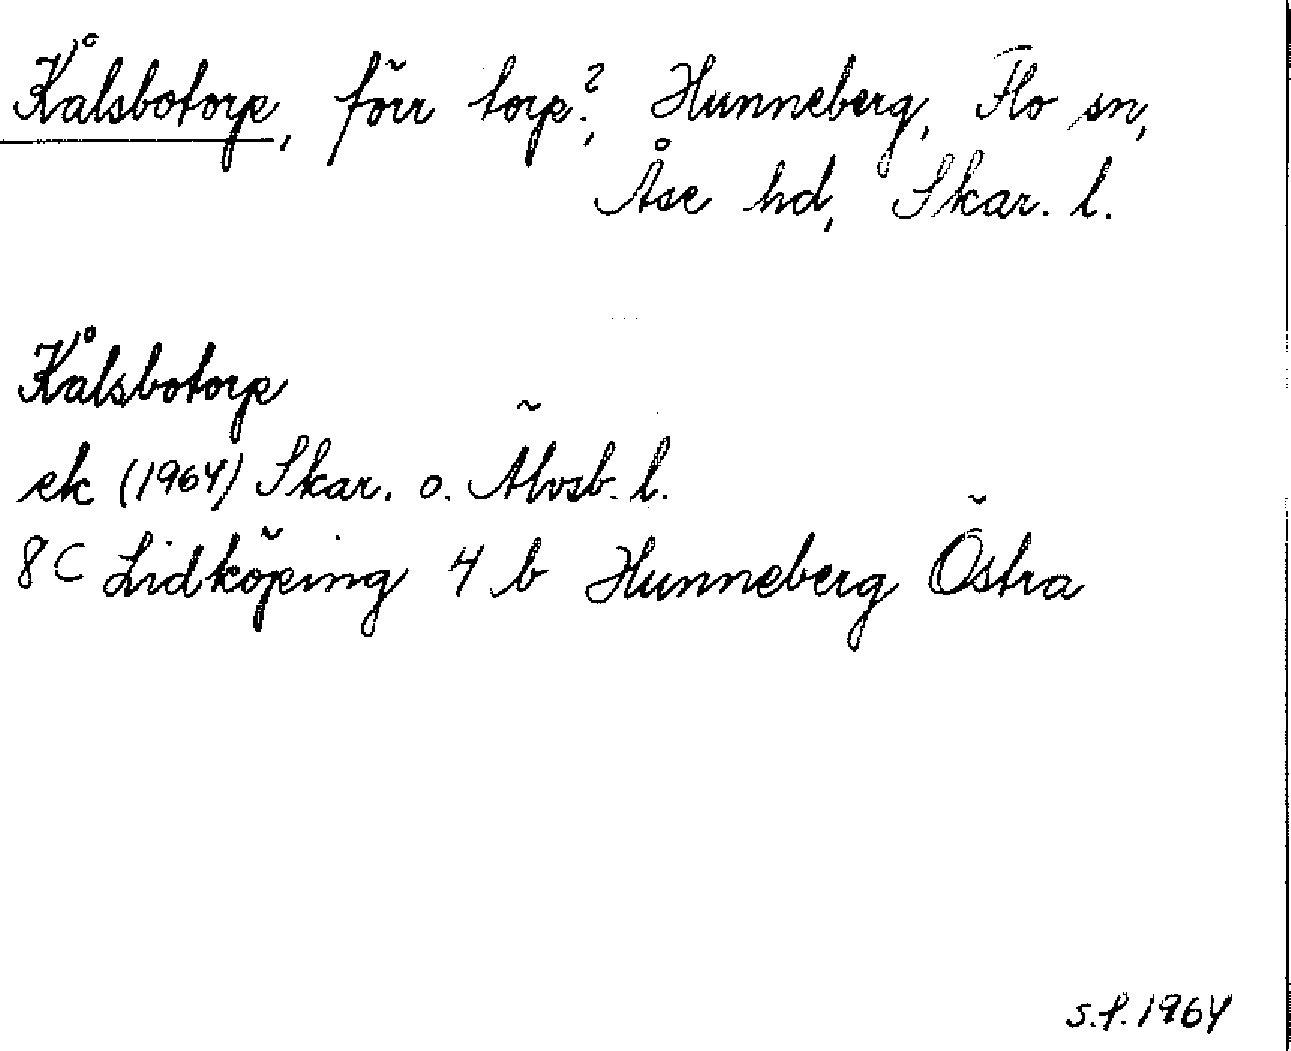 Kålsbotorp, förr torp?, Hunneberg, Flo sn,
Åse hd, Skar. l.
Kålsbotorp
ek (1964) Skar. o. Älvsb. l.
8C Lidköping 4 b Hunneberg Östra
S.f. 1964